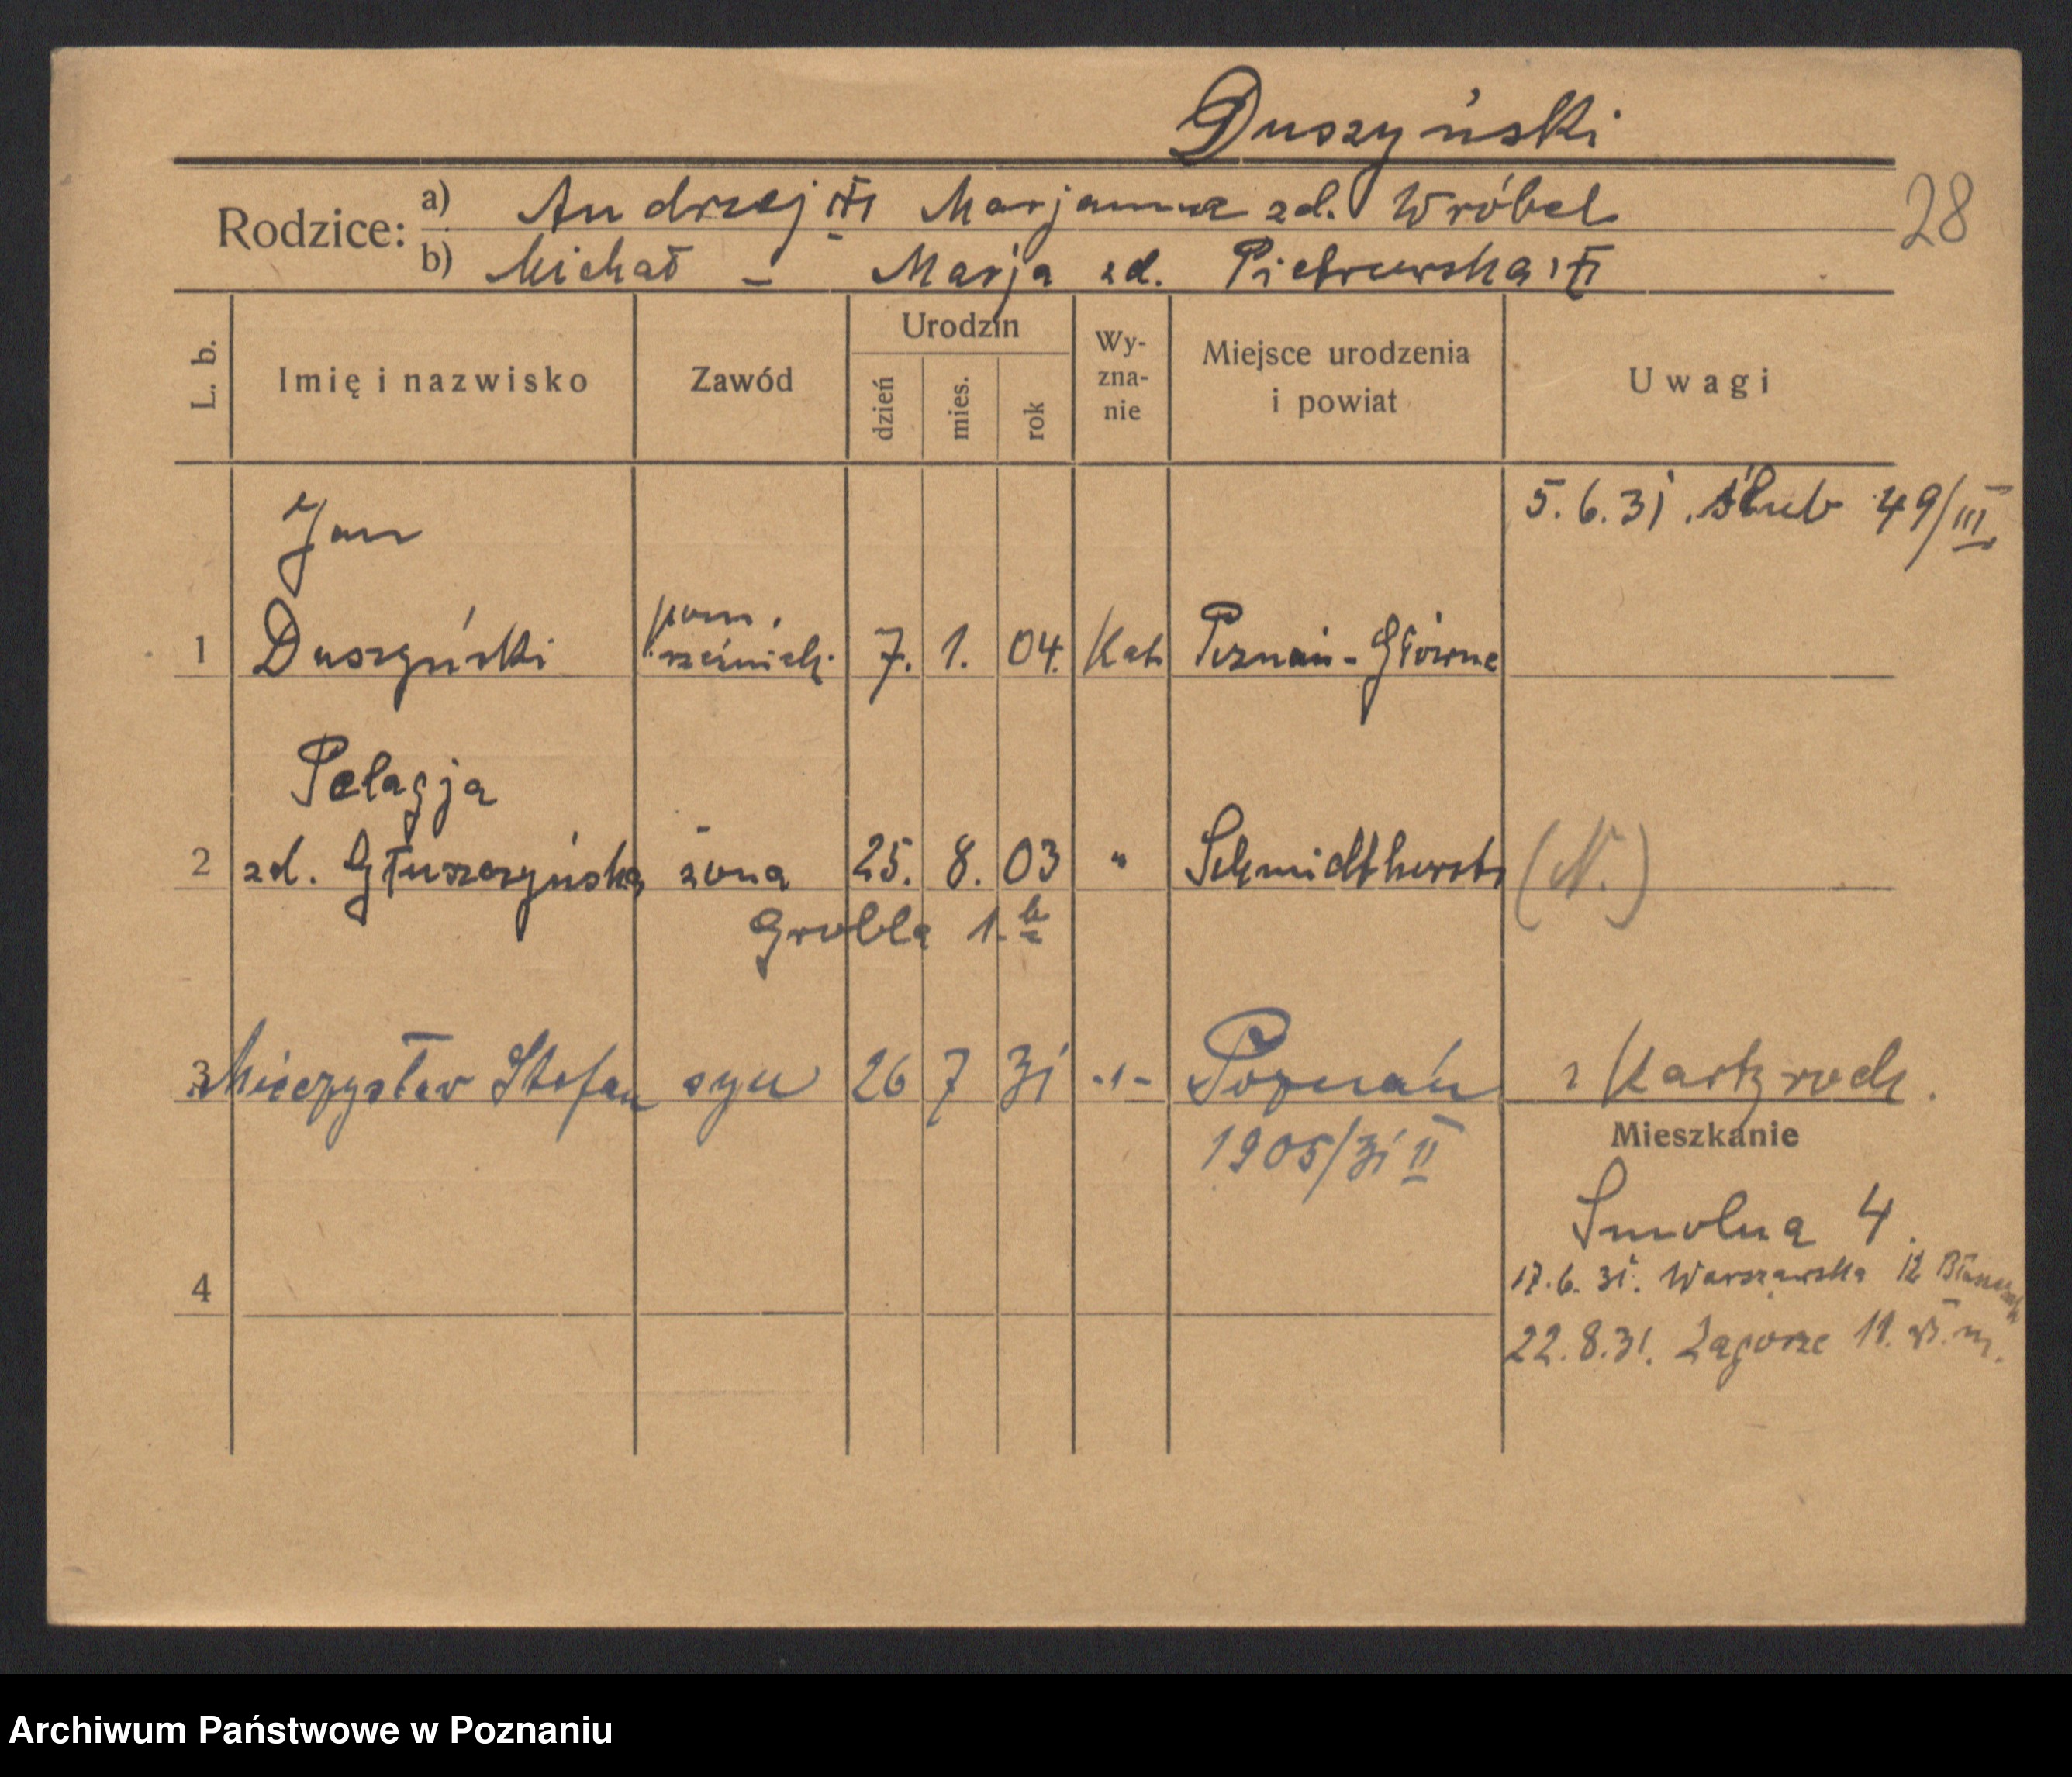 Duszyński
28
Rodzice:
a) Andrzej Marjanna zd. Wróbel
b) Michał - Marja zd. Pietrowska
L. b.
Imię i nazwisko
Zawód
Urodzin
dzień
mies.
rok
Wy-
zna-
nie
Miejsce urodzenia
i powiat
Uwagi
5.6.31. ślub 49/III
Jan
pom.
1 Duszyński rzeźnick. 7. 1. 04. Kat. Poznań-Główna
Pelagja
2 zd. Głuszczyńska żona 25. 8. 03 " Schmidthorst (N.)
Grobla 1.
3 Mieczysław Stefan syn 26 7 31 -"- Poznań
z Karty rodz.
1905/31 II
Mieszkanie
Smolna 4.
17.6.31. Warszawska 12
4
22.8.31. Zagórze 11.
Archiwum Państwowe w Poznaniu